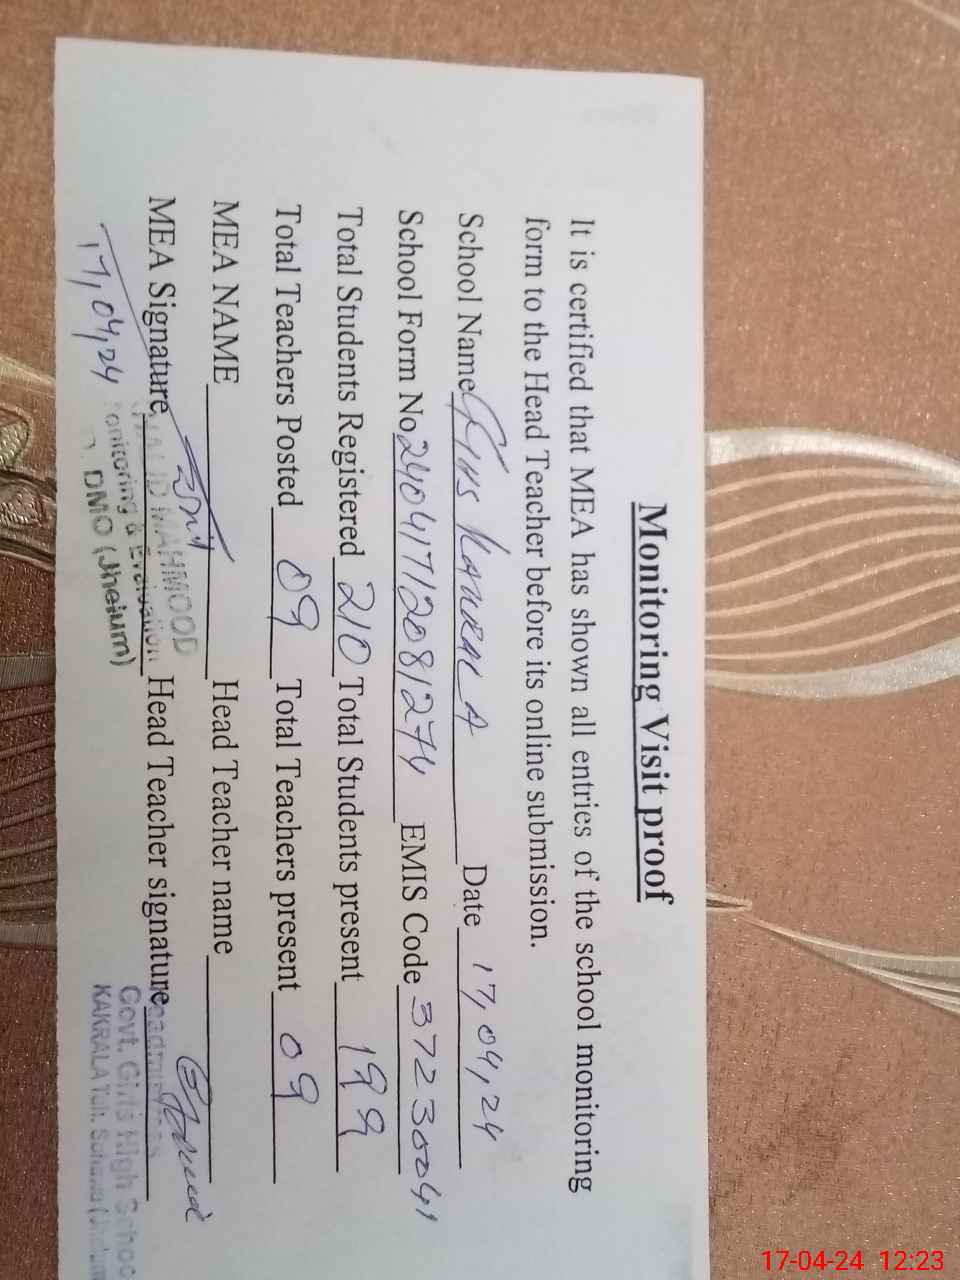 Monitoring Visit proof
It is certified that MEA has shown all entries of the school monitoring
form to the Head Teacher before its online submission.
School Name GGHS A Date 17,04,24
School Form No 24041712081274 EMIS Code 37230041
Total Students Registered 210 Total Students present 199
Total Teachers Posted 09 Total Teachers present 09
MEA NAME Head Teacher name
MEA Signature Head Teacher signature
MAHMOOD
17,04,24 onitoring & Evaluation
DMO (Jhelum)
Govt. Girls High School
KAKRALA Teh. Sohawa (Jhelum
17-04-24 12:23